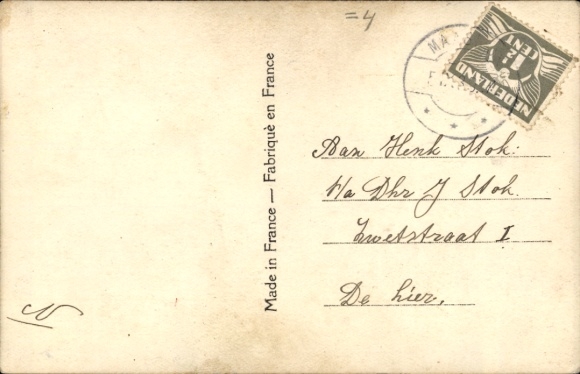 =4
MA
NEDERLAND
1½
CENT
Made in France — Fabriquè en France
Aan Henk Stok.
p/a Dhr J Stok
Zwetstraat I
De hier.